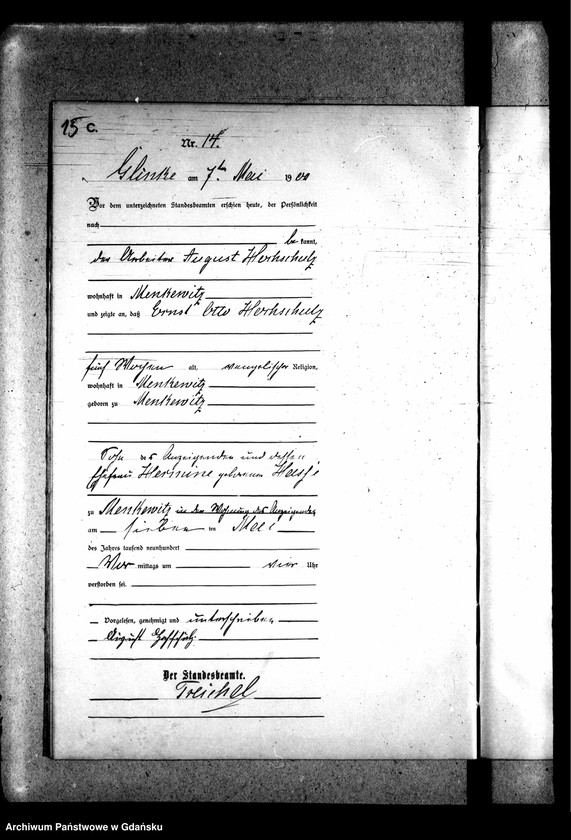 15 C.
Nr. 14.
Glinke am 7ten Mai 1900
Vor dem unterzeichneten Standesbeamten erschien heute, der Persönlichkeit
nach
bekannt,
der Arbeiter August Herhschulz
wohnhaft in Menkewitz
und zeigte an, daß Ernst Otto Herhschulz
fünf Wochen alt, evangelischer Religion,
wohnhaft in Menkewitz
geboren zu Menkewitz
Sohn des Anzeigenden und dessen
Ehefrau Hermine geborenen
zu Menkewitz in der Wohnung des Anzeigenden
am sieben ten Mai
des Jahres tausend neunhundert
Vor mittags um vier Uhr
verstorben sei.
Vorgelesen, genehmigt und unterschrieben
August
Der Standesbeamte.
Treichel
Archiwum Państwowe w Gdańsku